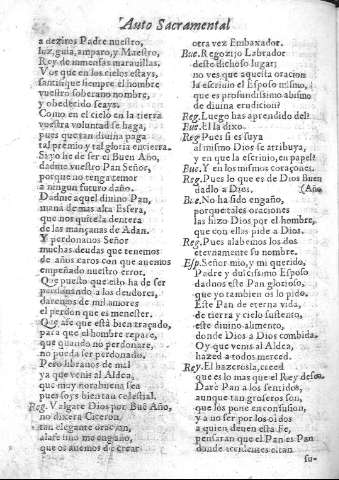 Auto Sacramental
a deziros Padre nuestro,
luz, guia, amparo, y Maestro,
Rey de inmensas marauillas,
Vos que en los cielos estays,
santifique siempre el hombre
vuestro soberano nombre,
y obedecido seays.
Como en el cielo en la tierra
vuestra voluntad se haga,
pues que tan diuina paga
tal premio y tal gloria encierra.
Si yo he de ser el Buen Año,
dadme vuestro Pan Señor,
porque no tenga temor
a ningun futuro daño.
Dadme aquel diuino Pan,
maná de mas alta Esfera,
que nos quite la dentera
de las mançanas de Adan.
Y perdonanos Señor
muchas deudas que tenemos
de años caros con que auemos
empeñado nuestro error.
Que puesto que esto ha de ser
perdonando a los deudores,
daremos de mil amores
el perdon que es menester.
Que assi que está bien traçado,
para que el hombre repare,
que quando no perdonare,
no pueda ser perdonado.
Pero libranos de mal
ya que venis al Aldea,
que muy norabuena sea
pues soys bientan celestial.
Reg. Valgate Dios por Bué Año,
no dixera Ciceron
tan elegante oracion,
alase sino me engaño,
que os auemos de crear
otra vez Embaxador.
Bue. Regozijo Labrador
deste dichoso lugar;
no ves que aquesta oracion
la escriuio el Esposo mismo,
que es profundissimo abismo
de diuina erudicion?
Reg. Luego has aprendido del?
Bue. El la dixo.
Reg. Pues si es suya
al mismo Dios se atribuya,
y en que la escriuio, en papel?
Bue. Y en los mismos coraçones.
Reg. Pues lo que es de Dios bien
dadlo a Dios. (Año
Bue. No ha sido engaño,
porque tales oraciones
las hizo Dios por el hombre,
que con ellas pide a Dios.
Reg. Pues alabemos los dos
eternamente su nombre.
Esp. Señor mio, y mi querido,
Padre y dulcissimo Esposo
dadnos este Pan glorioso,
que yo tambien os lo pido.
Este Pan de eterna vida,
de tierra y cielo sustento,
este diuino alimento,
donde Dios a Dios combida.
Oy que venis al Aldea,
hazed a todos merced.
Rey. El hazerosla, creed
que es lo mas que el Rey dessea.
Daré Pan a los sentidos,
aunque tan groseros son,
que los pone en confusion,
y a no ser por los oidos
a quien deuen esta Fe,
pensaran que el Pan es Pan
donde accidentes estan
su-